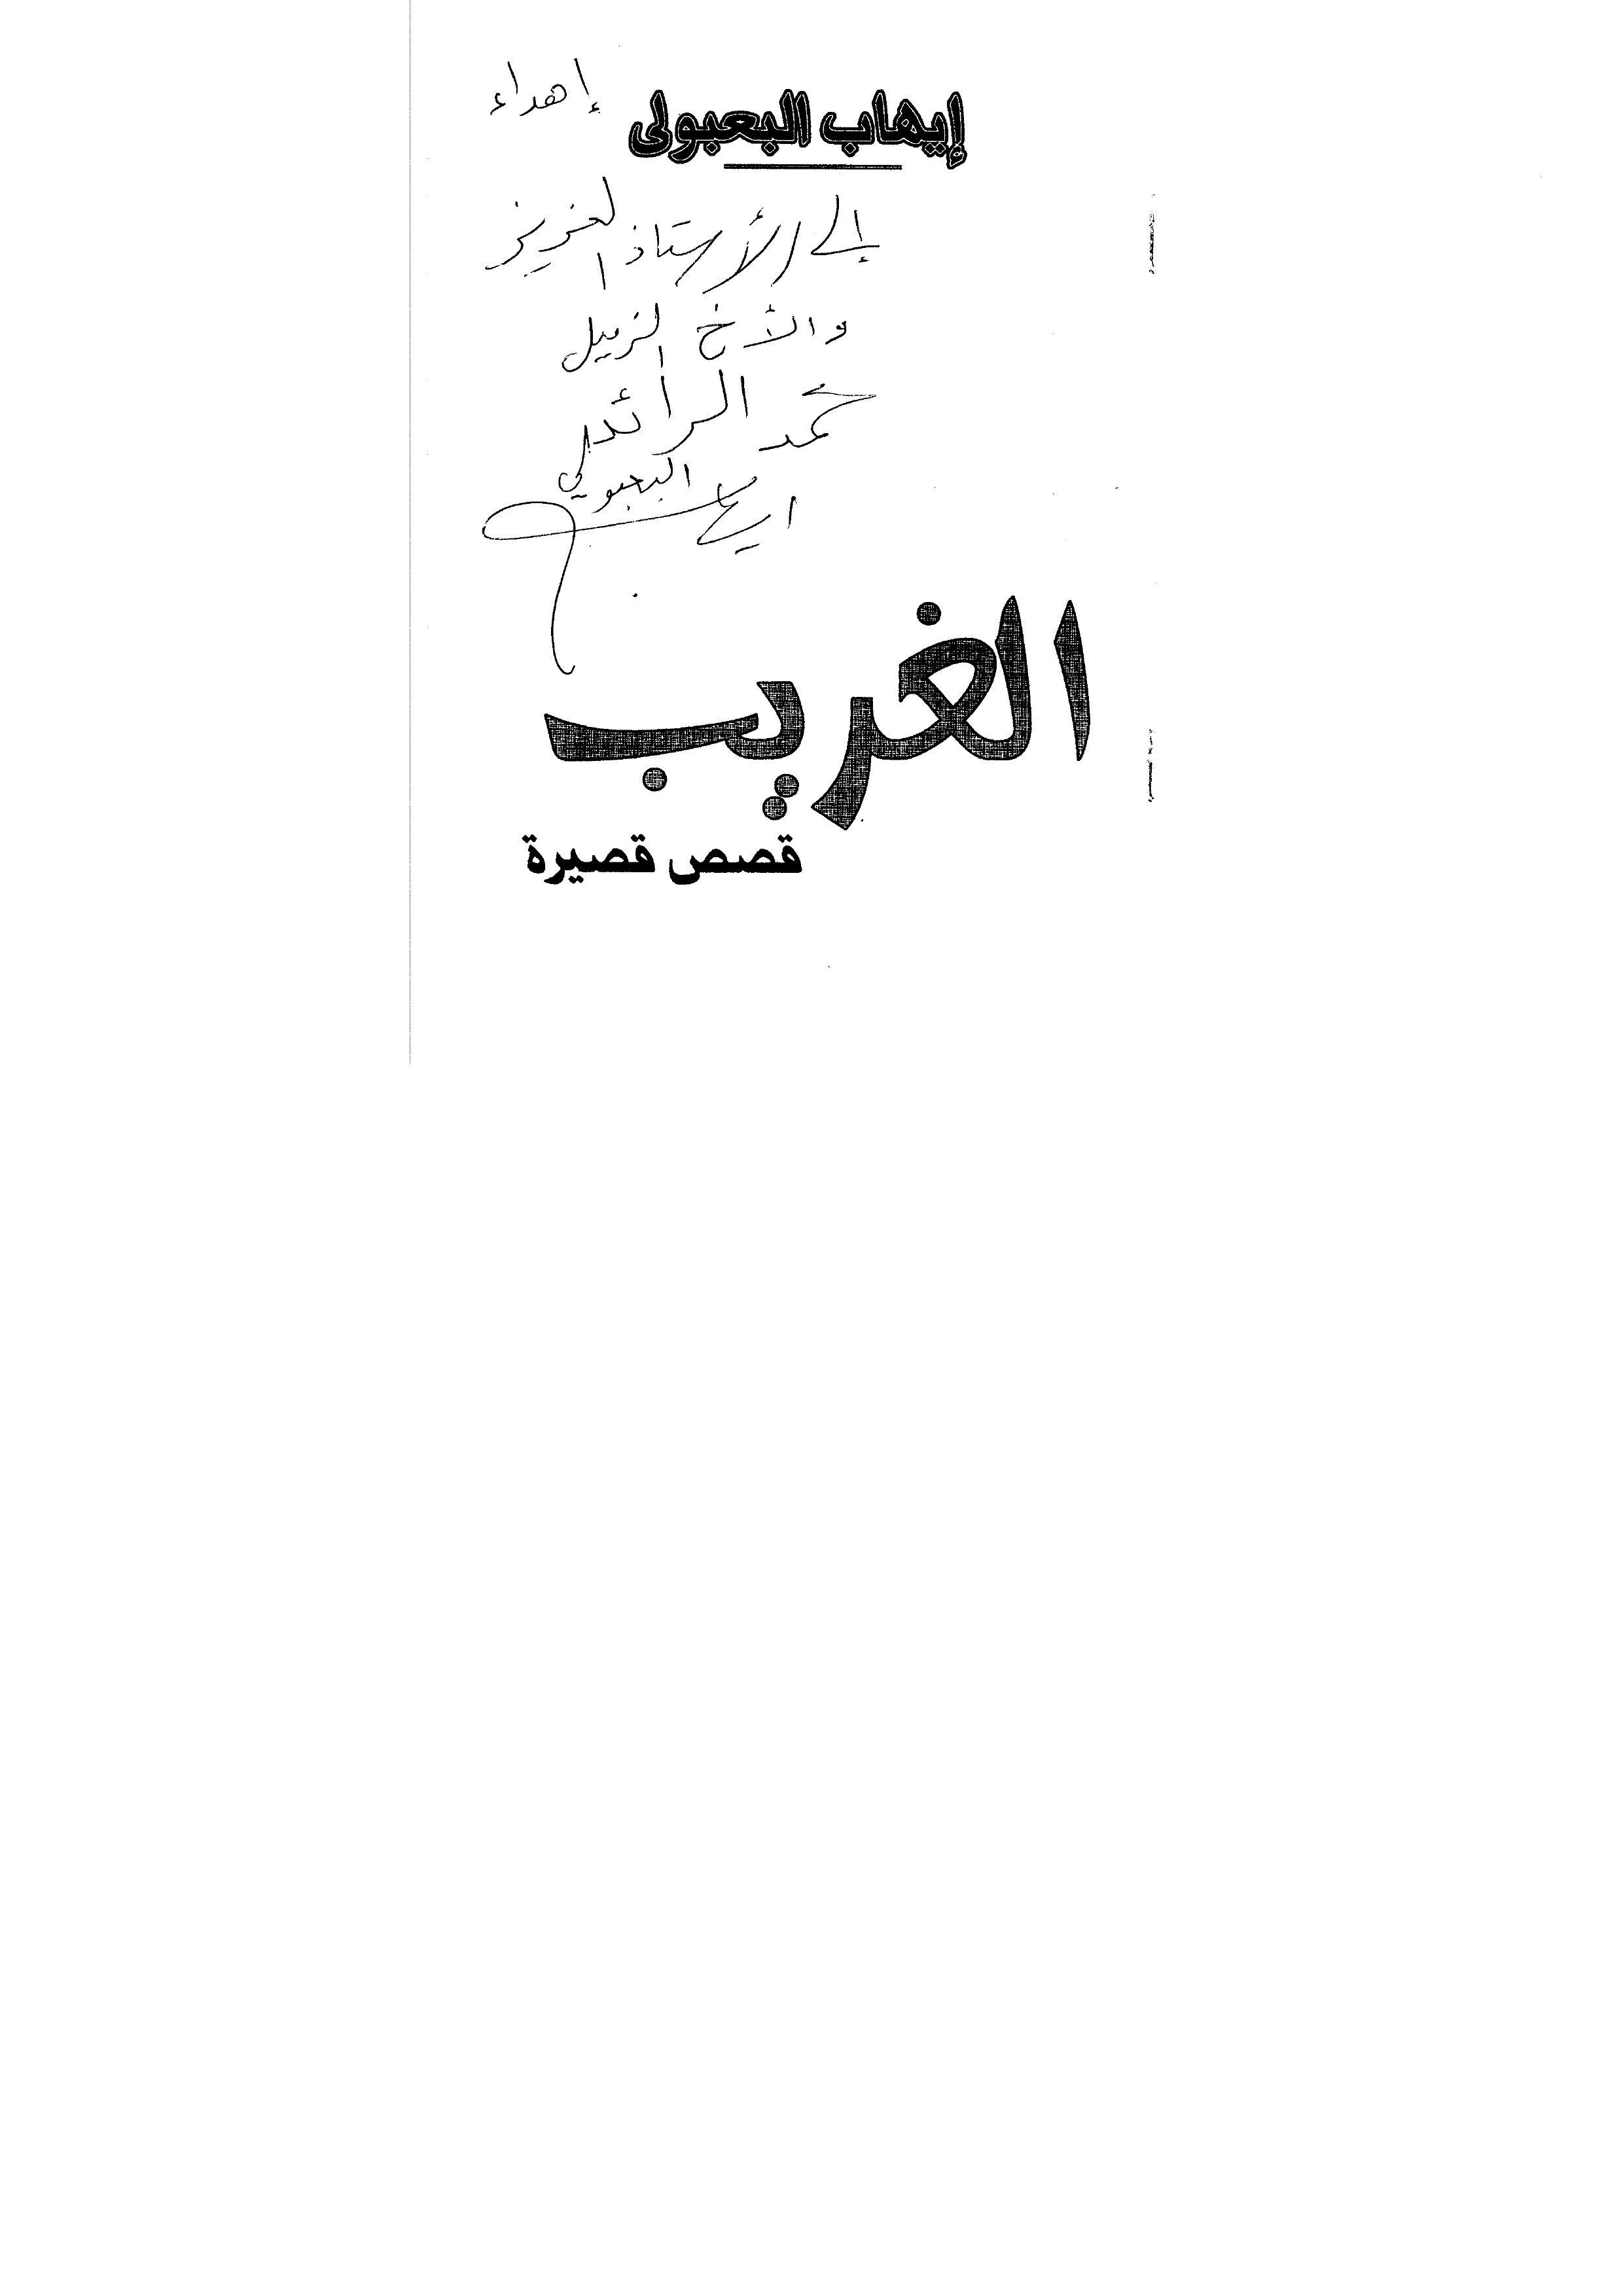 إيهاب البعبولى
إهداء
إلى الأستاذ العزيز
والأخ الزميل
محمد الرائدلي
ايهاب البعبولي
الغريب
قصص قصيرة